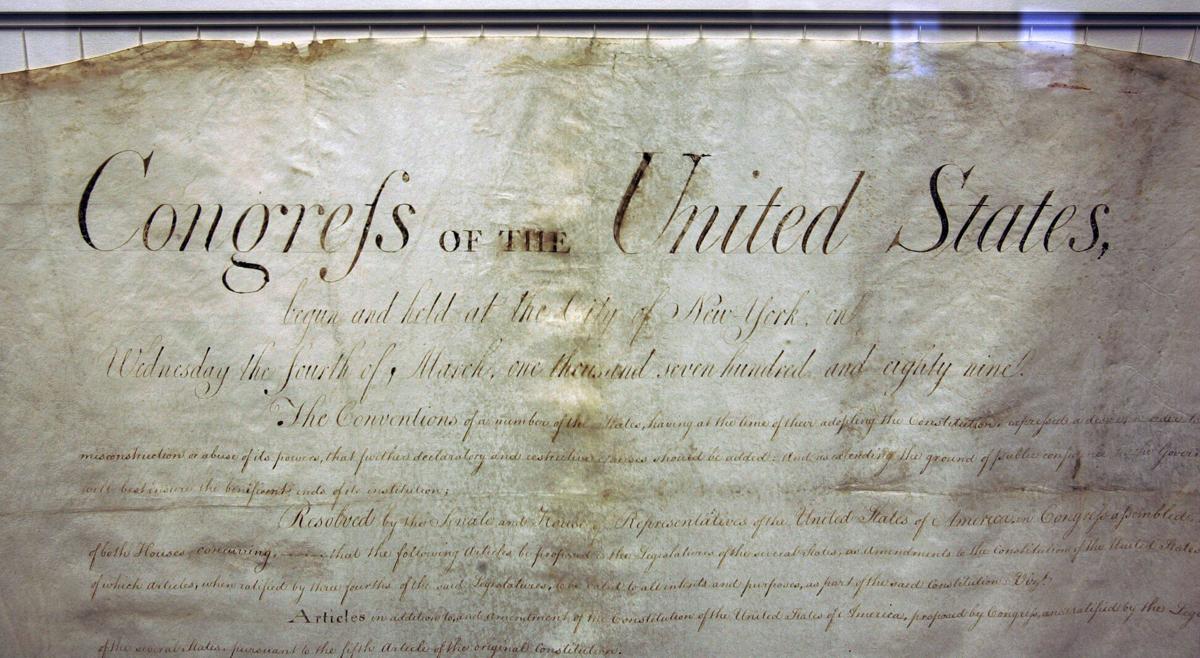 Congreſs OF THE United States,
begun and held at the City of New-York, on
Wednesday the fourth of March, one thousand seven hundred and eighty nine.
The Conventions of a number of the States, having at the time of their adopting the Constitution, expressed a desire in order t
misconstruction or abuse of its powers, that further declaratory and restrictive clauses should be added: And as extending the ground of public confidence in the Govern
will best insure the beneficent ends of its institution;
Resolved by the Senate and House of Representatives of the United States of America, in Congreſs aſsembled
of both Houses concurring, that the following Articles be proposed to the Legislatures of the several States, as Amendments to the Constitution of the United States
of which Articles, when ratified by three fourths of the said Legislatures, to be valid to all intents and purposes, as part of the said Constitution; Vizt
Articles in addition to, and Amendment of the Constitution of the United States of America, proposed by Congreſs, and ratified by the Leg
of the several States, pursuant to the fifth Article of the original Constitution.